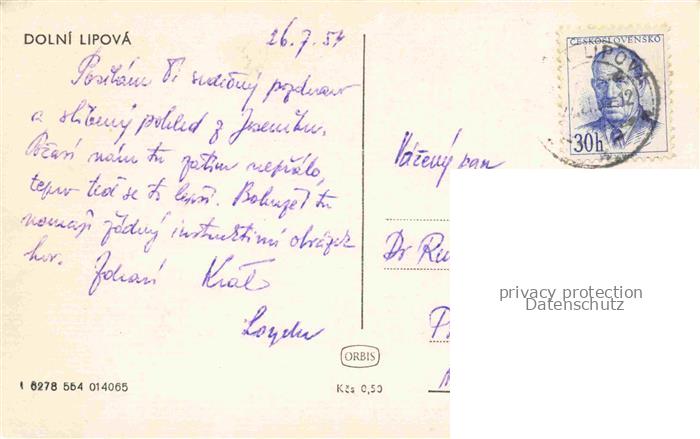 DOLNÍ LIPOVÁ
26.7.54
Posílám Ti srdečný pozdrav
a slíbený pohled z Jeseníku.
Počasí nám tu zatím nepřálo,
teprv teď se to lepší. Bohužel tu
nemají žádný instruktivní obrázek
hor. Zdraví Král
ČESKOSLOVENSKO
LIPOVÁ
12
30h
Vážený pan
Dr
privacy protection
Datenschutz
ORBIS
Kčs 0,50
1 6278 554 014065